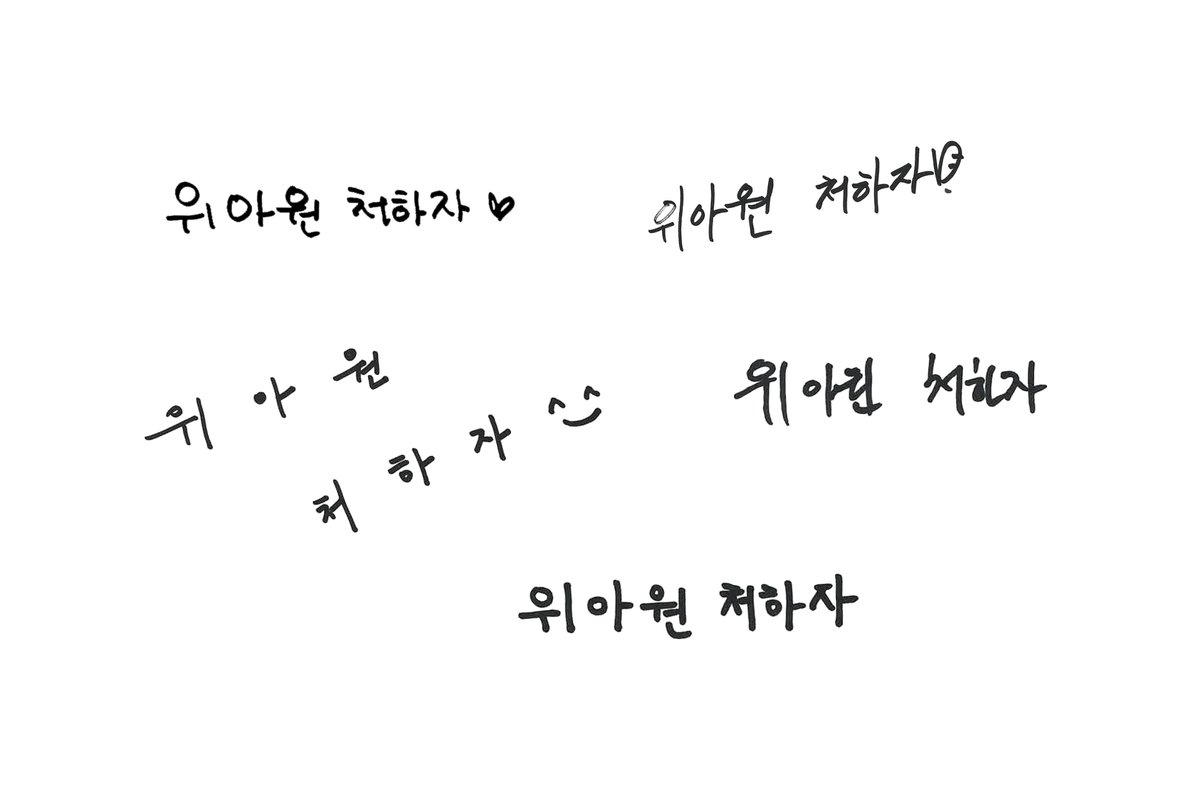 위아원 처하자♡
위아원 처하자
위아원
처하자 ^^
위아원 처하자
위아원 처하자